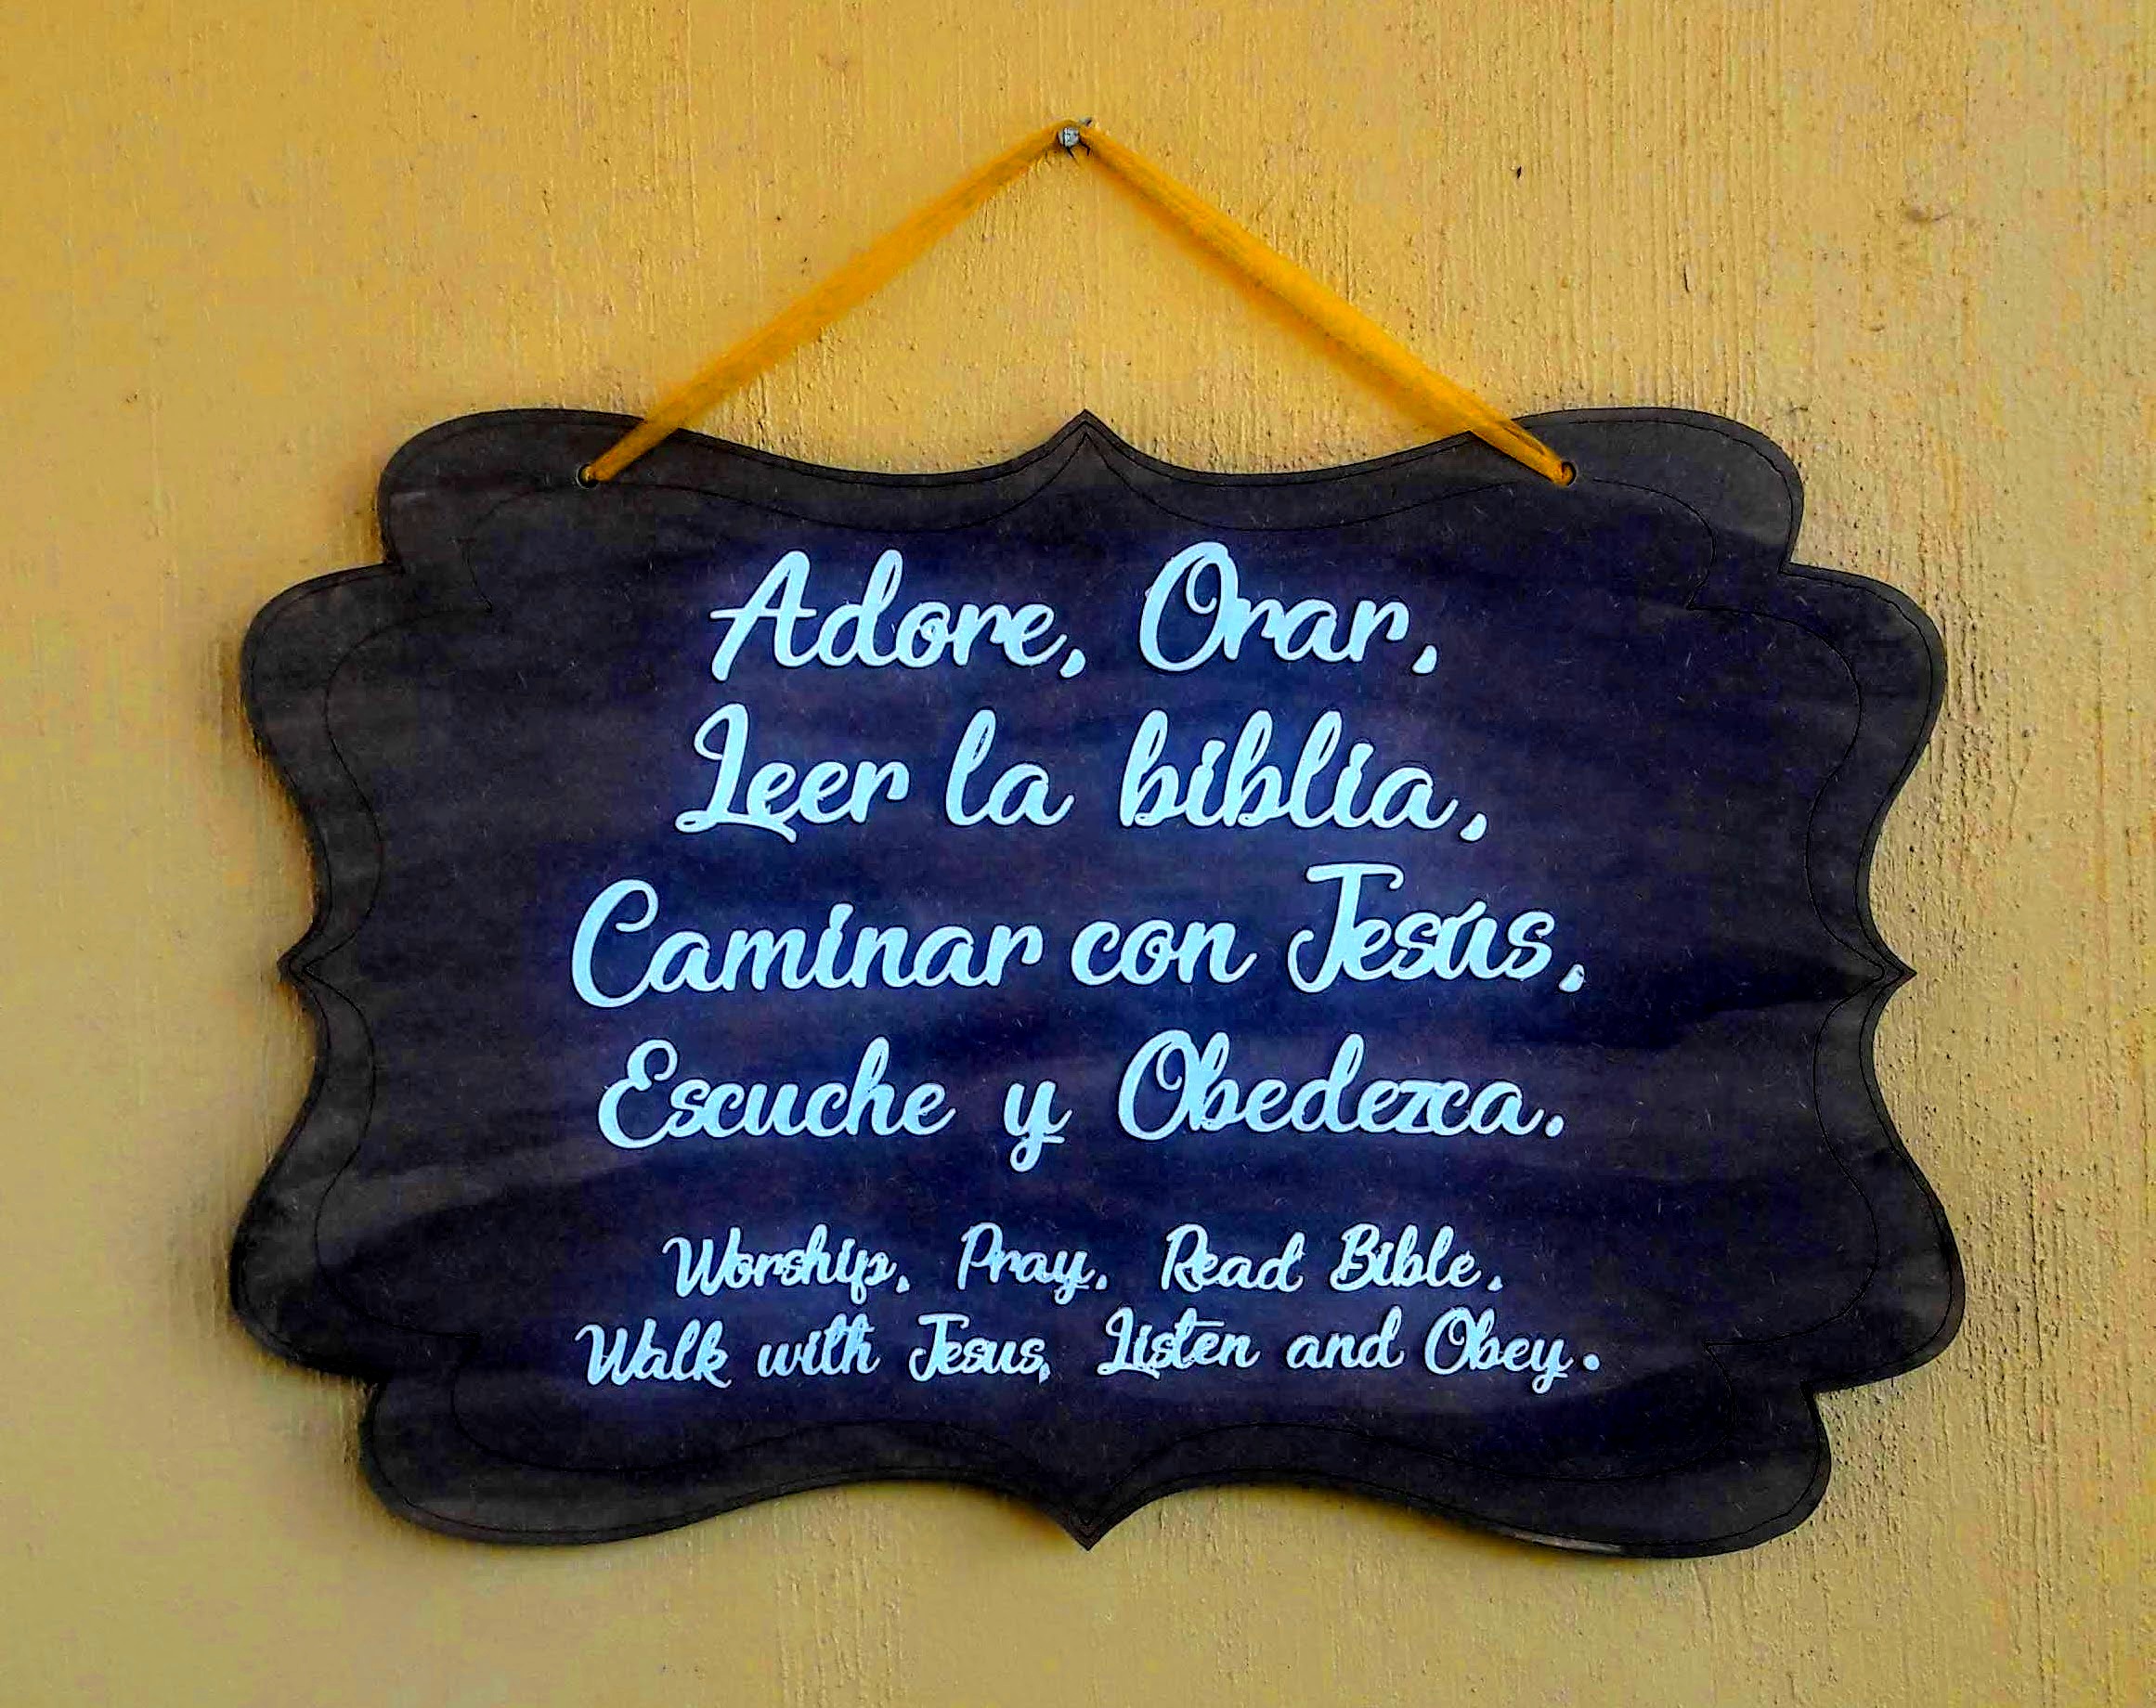 Adore, Orar,
Leer la biblia,
Caminar con Jesús,
Escuche y Obedezca.
Worship, Pray, Read Bible,
Walk with Jesus, Listen and Obey.